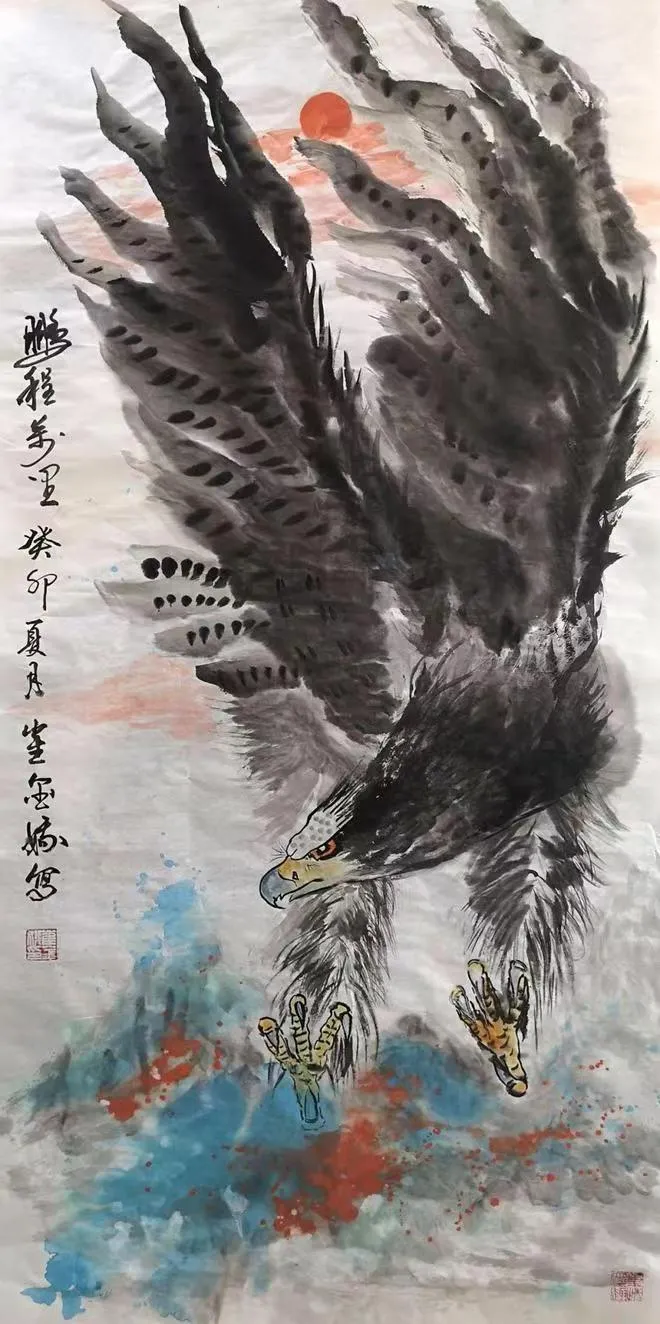 鹏程万里 癸卯夏月 崔金娥写